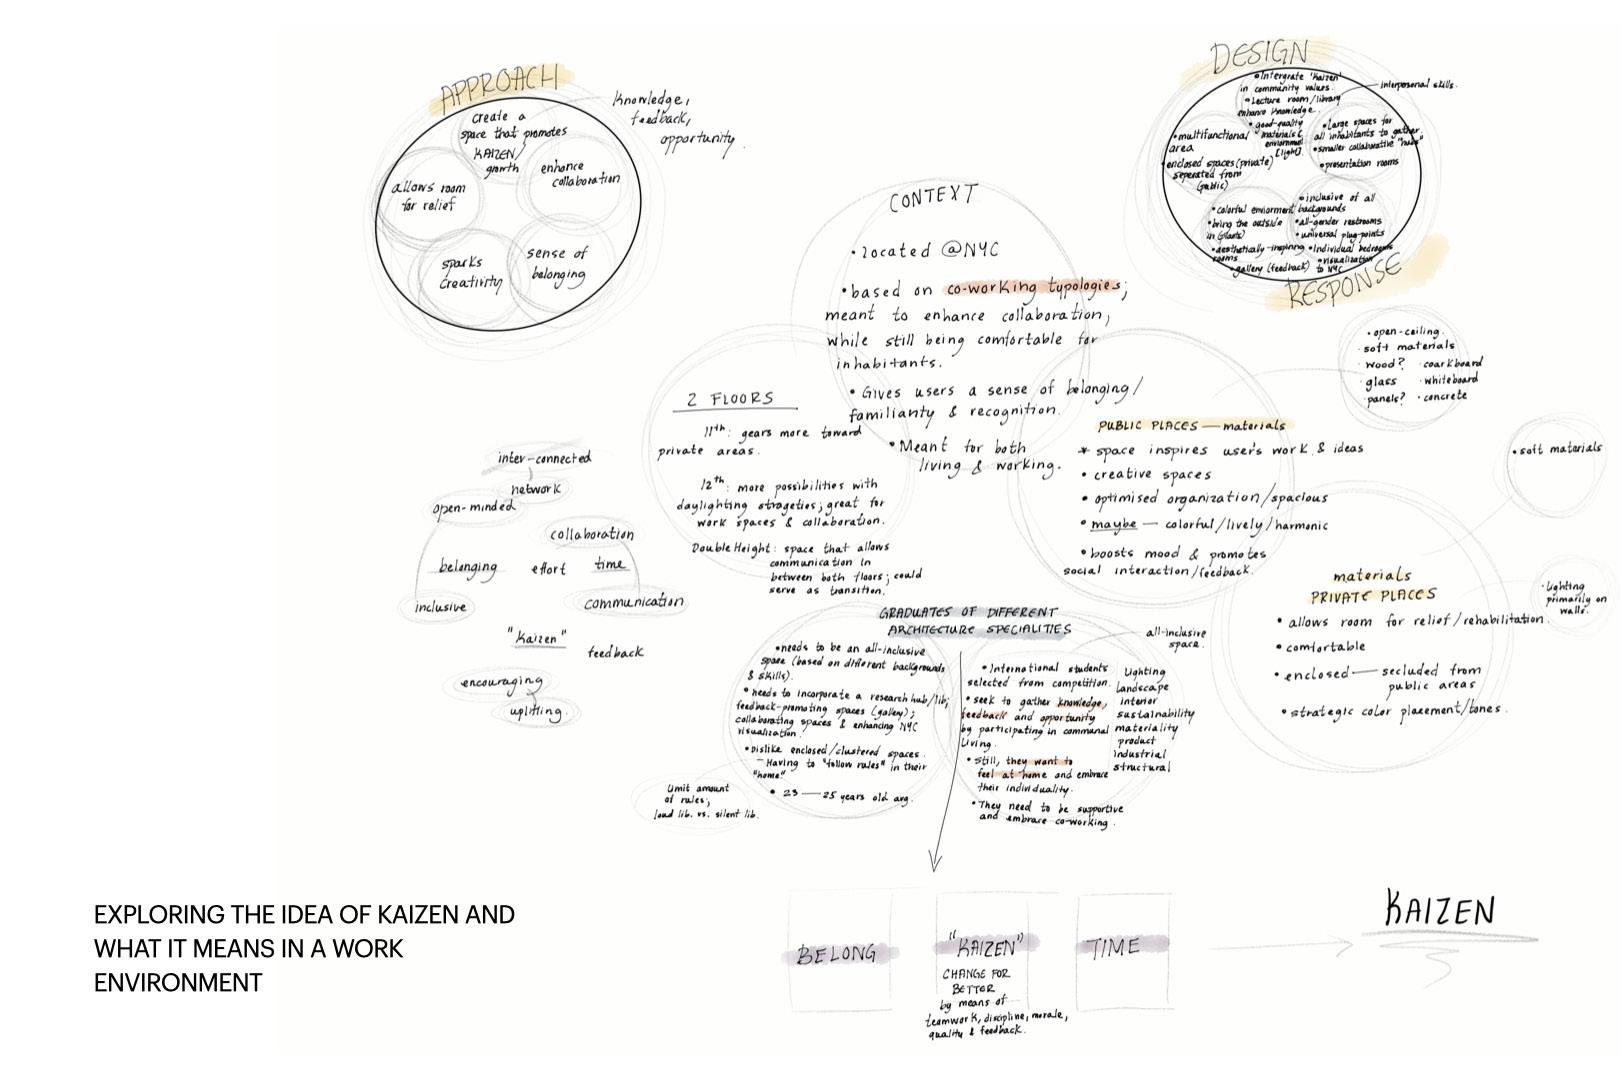 APPROACH
create a
space that promotes
KAIZEN/
growth
enhance
collaboration
allows room
for relief
sparks
creativity
sense of
belonging
Knowledge,
feedback,
opportunity.
DESIGN
• Intergrate "Kaizen"
in community values.
• Lecture room/library
enhance knowledge
• good-quality
materials &
enviorment
[light].
interpersonal skills.
• multifunctional
area
enclosed spaces (private)
seperated from
(public)
• Large spaces for
all inhabitants to gather
• smaller collaborative "hubs"
• presentation rooms
• colorful enviorment
• bring the outside
in (plants)
• aesthetically-inspiring
rooms
• gallery (feedback)
• inclusive of all
backgrounds
• all-gender restrooms
• universal plug-points
• Individual bedrooms
• visualization
to NYC
RESPONSE
CONTEXT
• located @NYC
• based on co-working typologies;
meant to enhance collaboration,
while still being comfortable for
inhabitants.
• Gives users a sense of belonging/
familiarity & recognition.
• Meant for both
living & working.
2 FLOORS
11th: gears more toward
private areas.
12th: more possibilities with
daylighting strageties; great for
work spaces & collaboration.
Double Height: space that allows
communication in
between both floors; could
serve as transition.
• open-ceiling.
• soft materials
• wood? • coarkboard
• glass • whiteboard
• panels? • concrete
PUBLIC PLACES — materials
* space inspires user's work & ideas
• creative spaces
• optimised organization/spacious
• maybe — colorful/lively/harmonic
• boosts mood & promotes
social interaction/feedback.
• soft materials
materials
PRIVATE PLACES
• allows room for relief/rehabilitation.
• comfortable
• enclosed — secluded from
public areas
• strategic color placement/tones.
• Lighting
primarily on
walls.
inter-connected
network
open-minded
collaboration
belonging
effort
time
inclusive
communication
"Kaizen"
feedback
encouraging
uplifting.
GRADUATES OF DIFFERENT
ARCHITECTURE SPECIALITIES
• needs to be an all-inclusive
space (based on different backgrounds
& skills).
• needs to incorporate a research hub/lib;
feedback-promoting spaces (gallery);
collaborating spaces & enhancing NYC
visualization.
• Dislike enclosed/clustered spaces.
— Having to "follow rules" in their
"home"
• 23 — 25 years old avg.
Limit amount
of rules;
loud lib. vs. silent lib.
all-inclusive
space.
• International students
selected from competition.
• seek to gather knowledge,
feedback and opportunity
by participating in communal
living.
• Still, they want to
feel at "home" and embrace
their individuality.
• They need to be supportive
and embrace co-working.
Lighting
Landscape
interior
sustainability
materiality
product
industrial
structural
BELONG
"KAIZEN"
CHANGE FOR
BETTER
by means of
teamwork, discipline, morale,
quality & feedback.
TIME
KAIZEN
EXPLORING THE IDEA OF KAIZEN AND
WHAT IT MEANS IN A WORK
ENVIRONMENT